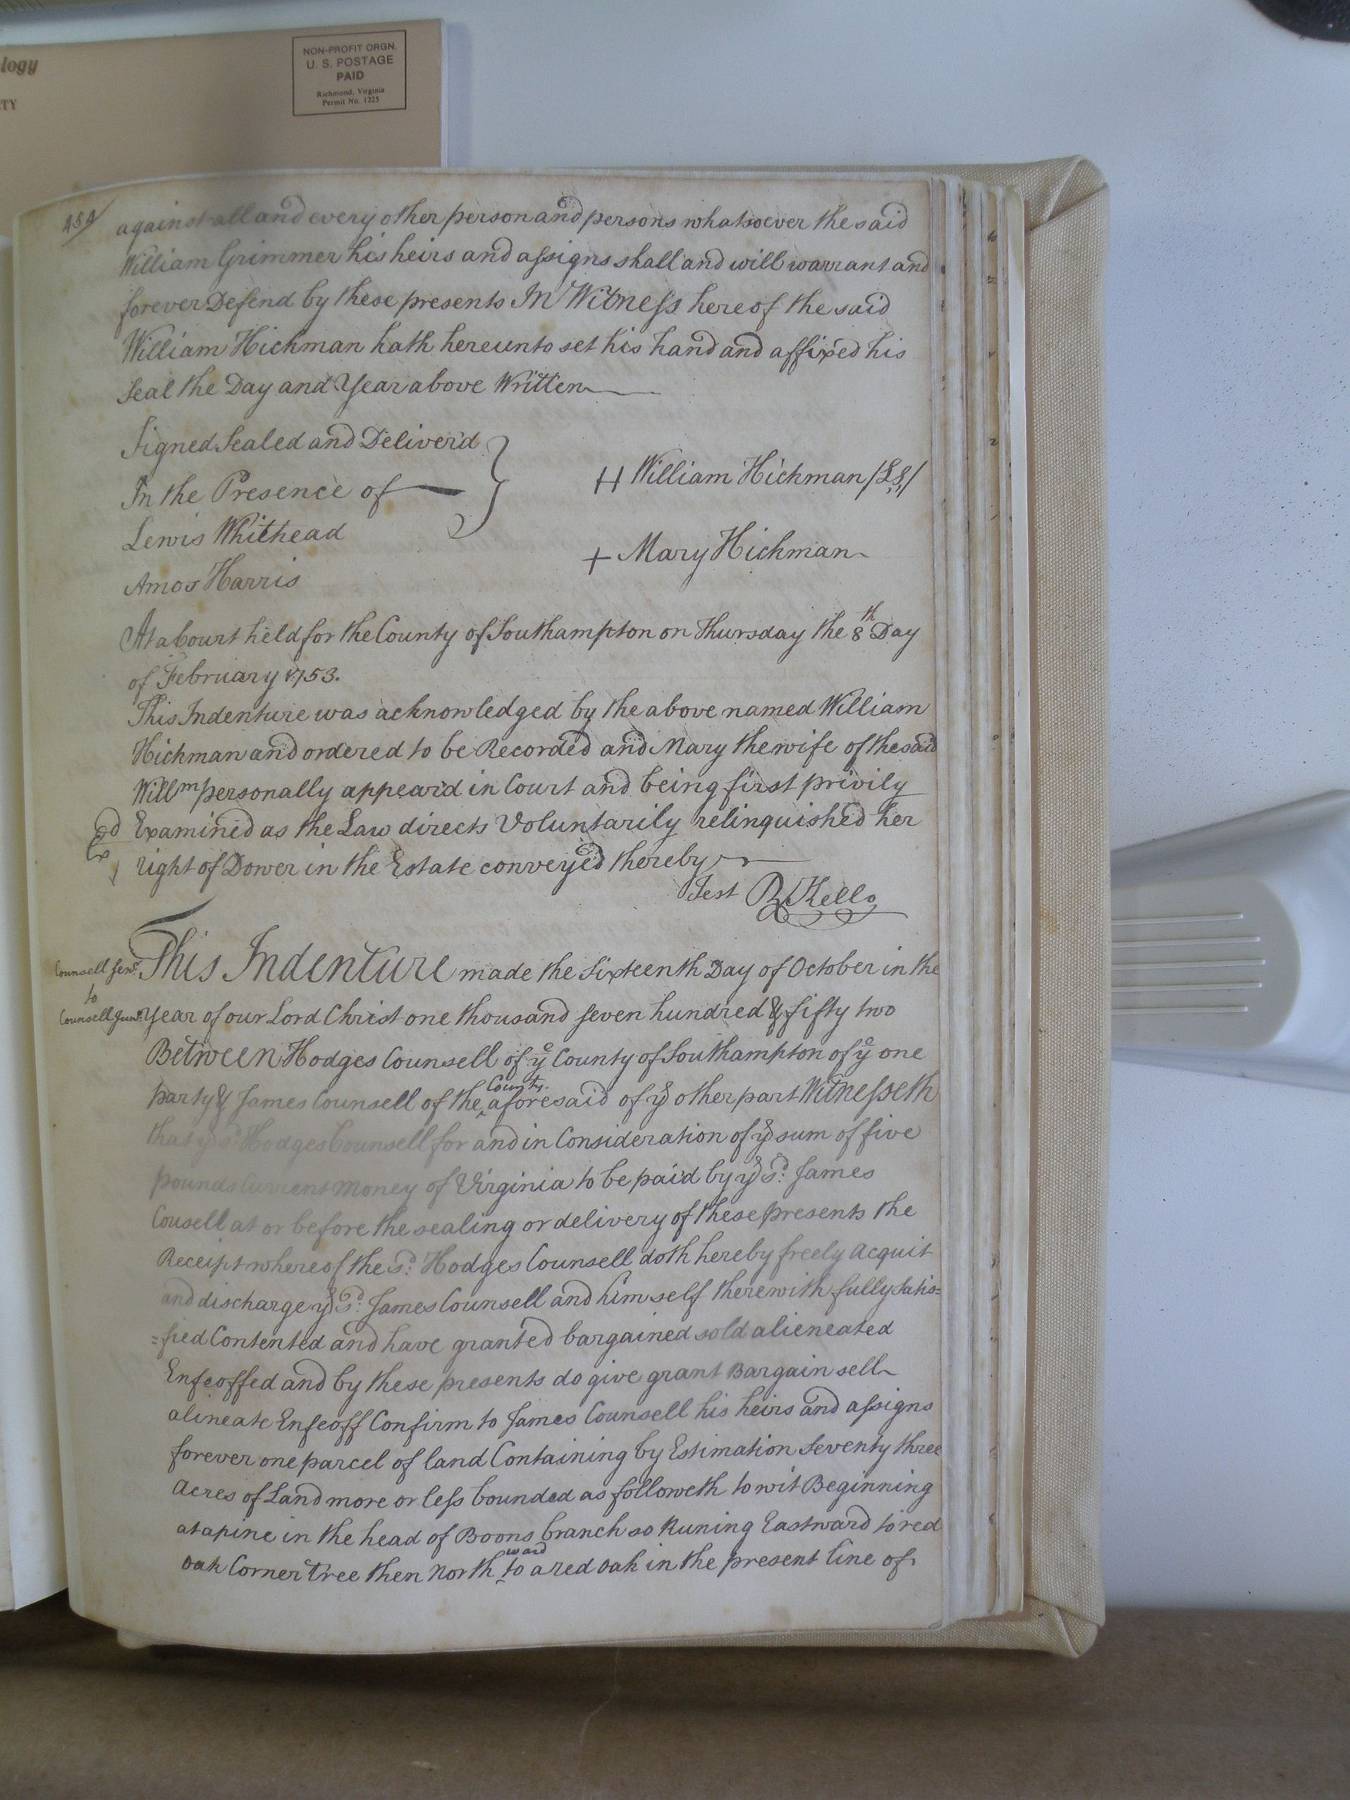 logy
TY
NON-PROFIT ORGN.
U. S. POSTAGE
PAID
Richmond, Virginia
Permit No. 1225
454
against all and every other person and persons whatsoever the said
William Grimmer his heirs and assigns shall and will warrant and
forever Defend by these presents In Witness here of the said
William Hickman hath hereunto set his hand and affixed his
Seal the Day and Year above Written
Signed Sealed and Deliver'd
In the Presence of
Lewis Whithead
Amos Harris
H William Hickman /LS/
+ Mary Hickman
At a Court held for the County of Southampton on Thursday the 8th Day
of February 1753.
This Indenture was acknowledged by the above named William
Hickman and ordered to be Recorded and Mary the wife of the said
Willm personally appear'd in Court and being first privily
Examined as the Law directs Voluntarily relinquished her
right of Dower in the Estate conveyed thereby
Test R Kello
Ex'd
Counsell Senr.
to
Counsell Junr.
This Indenture made the Sixteenth Day of October in the
Year of our Lord Christ one thousand seven hundred & fifty two
Between Hodges Counsell of ye County of Southampton of ye one
party & James Counsell of the County aforesaid of ye other part Witnesseth
that ye sd. Hodges Counsell for and in Consideration of ye sum of five
pounds Current Money of Virginia to be paid by ye sd. James
Cousell at or before the sealing or delivery of these presents the
Receipt whereof the sd. Hodges Counsell doth hereby freely Acquit
and discharge ye sd. James Counsell and himself therewith fully Satis=
=fied Contented and have granted bargained sold alieneated
Enfeoffed and by these presents do give grant Bargain sell
alineate Enfeoff Confirm to James Counsell his heirs and assigns
forever one parcel of land Containing by Estimation Seventy three
Acres of Land more or less bounded as followeth to wit Beginning
at a pine in the head of Boons branch so Runing Eastward to red
oak Corner tree then North ward to a red oak in the present line of